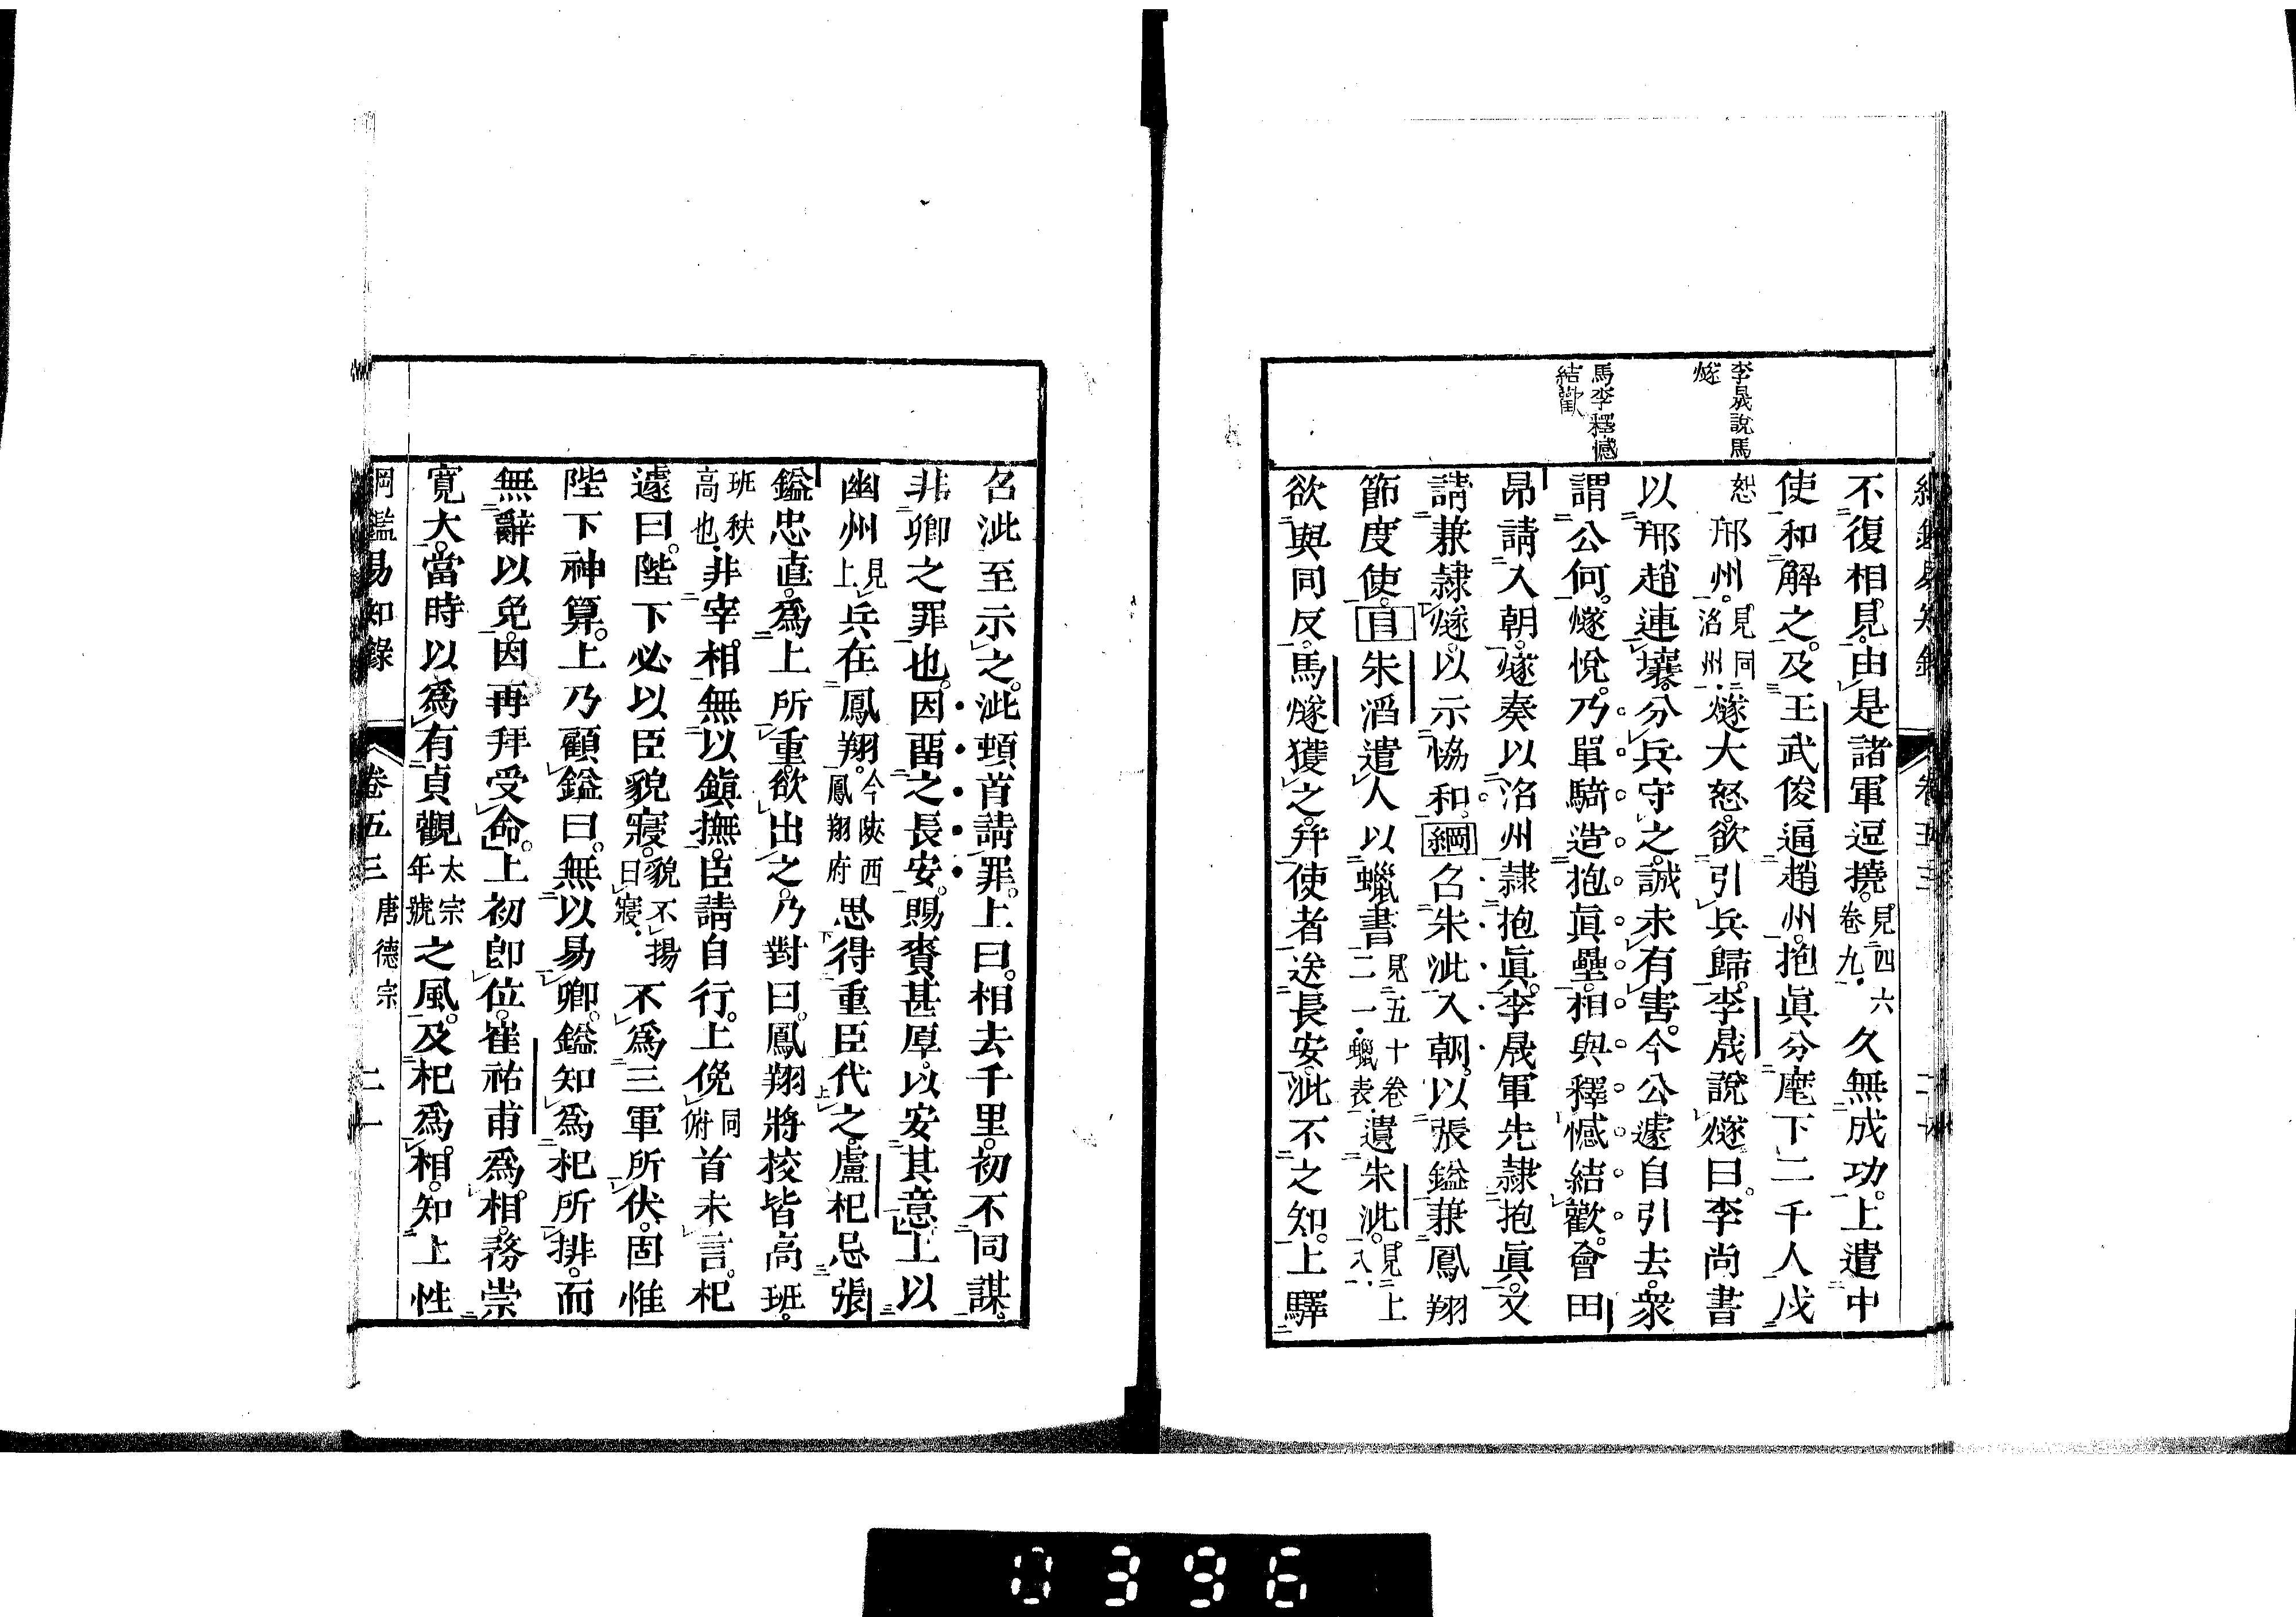 李晟說馬
燧
馬李釋憾
結歡
不復相見。由是諸軍逗撓。見四六卷九。久無成功。上遣中
使和解之。及王武俊逼趙州。抱眞分麾下二千人戍
邢州。見同恕洺州。燧大怒。欲引兵歸。李晟說燧曰。李尚書
以邢趙連壤。分兵守之。誠未有害。今公遽自引去。衆
謂公何。燧悅。乃單騎造抱眞壘。相與釋憾結歡。會田
昂請入朝。燧奏以洺州隷抱眞。李晟軍先隷抱眞。又
請兼隷燧。以示協和。綱召朱泚入朝。以張鎰兼鳳翔
節度使。目朱滔遣人以蠟書見五十卷二一蠟表。遺朱泚。見上八。
欲與同反。馬燧獲之。幷使者送長安。泚不之知。上驛
召泚至示之。泚頓首請罪。上曰。相去千里。初不同謀。
非卿之罪也。因畱之長安。賜賚甚厚。以安其意。上以
幽州見上兵在鳳翔。今陝西鳳翔府思得重臣代之。盧杞忌張
鎰忠直。爲上所重。欲出之。乃對曰。鳳翔將挍皆高班。
班秩高也。非宰相。無以鎭撫。臣請自行。上俛同俯首未言。杞
遽曰。陛下必以臣貌寢。貌不揚曰寢。不爲三軍所伏。固惟
陛下神算。上乃顧鎰曰。無以易卿。鎰知爲杞所排。而
無辭以免。因再拜受命。上初卽位。崔祐甫爲相。務崇
寛大。當時以爲有貞觀太宗年號之風。及杞爲相。知上性
綱鑑易知錄 卷五三 唐德宗 二一
0396